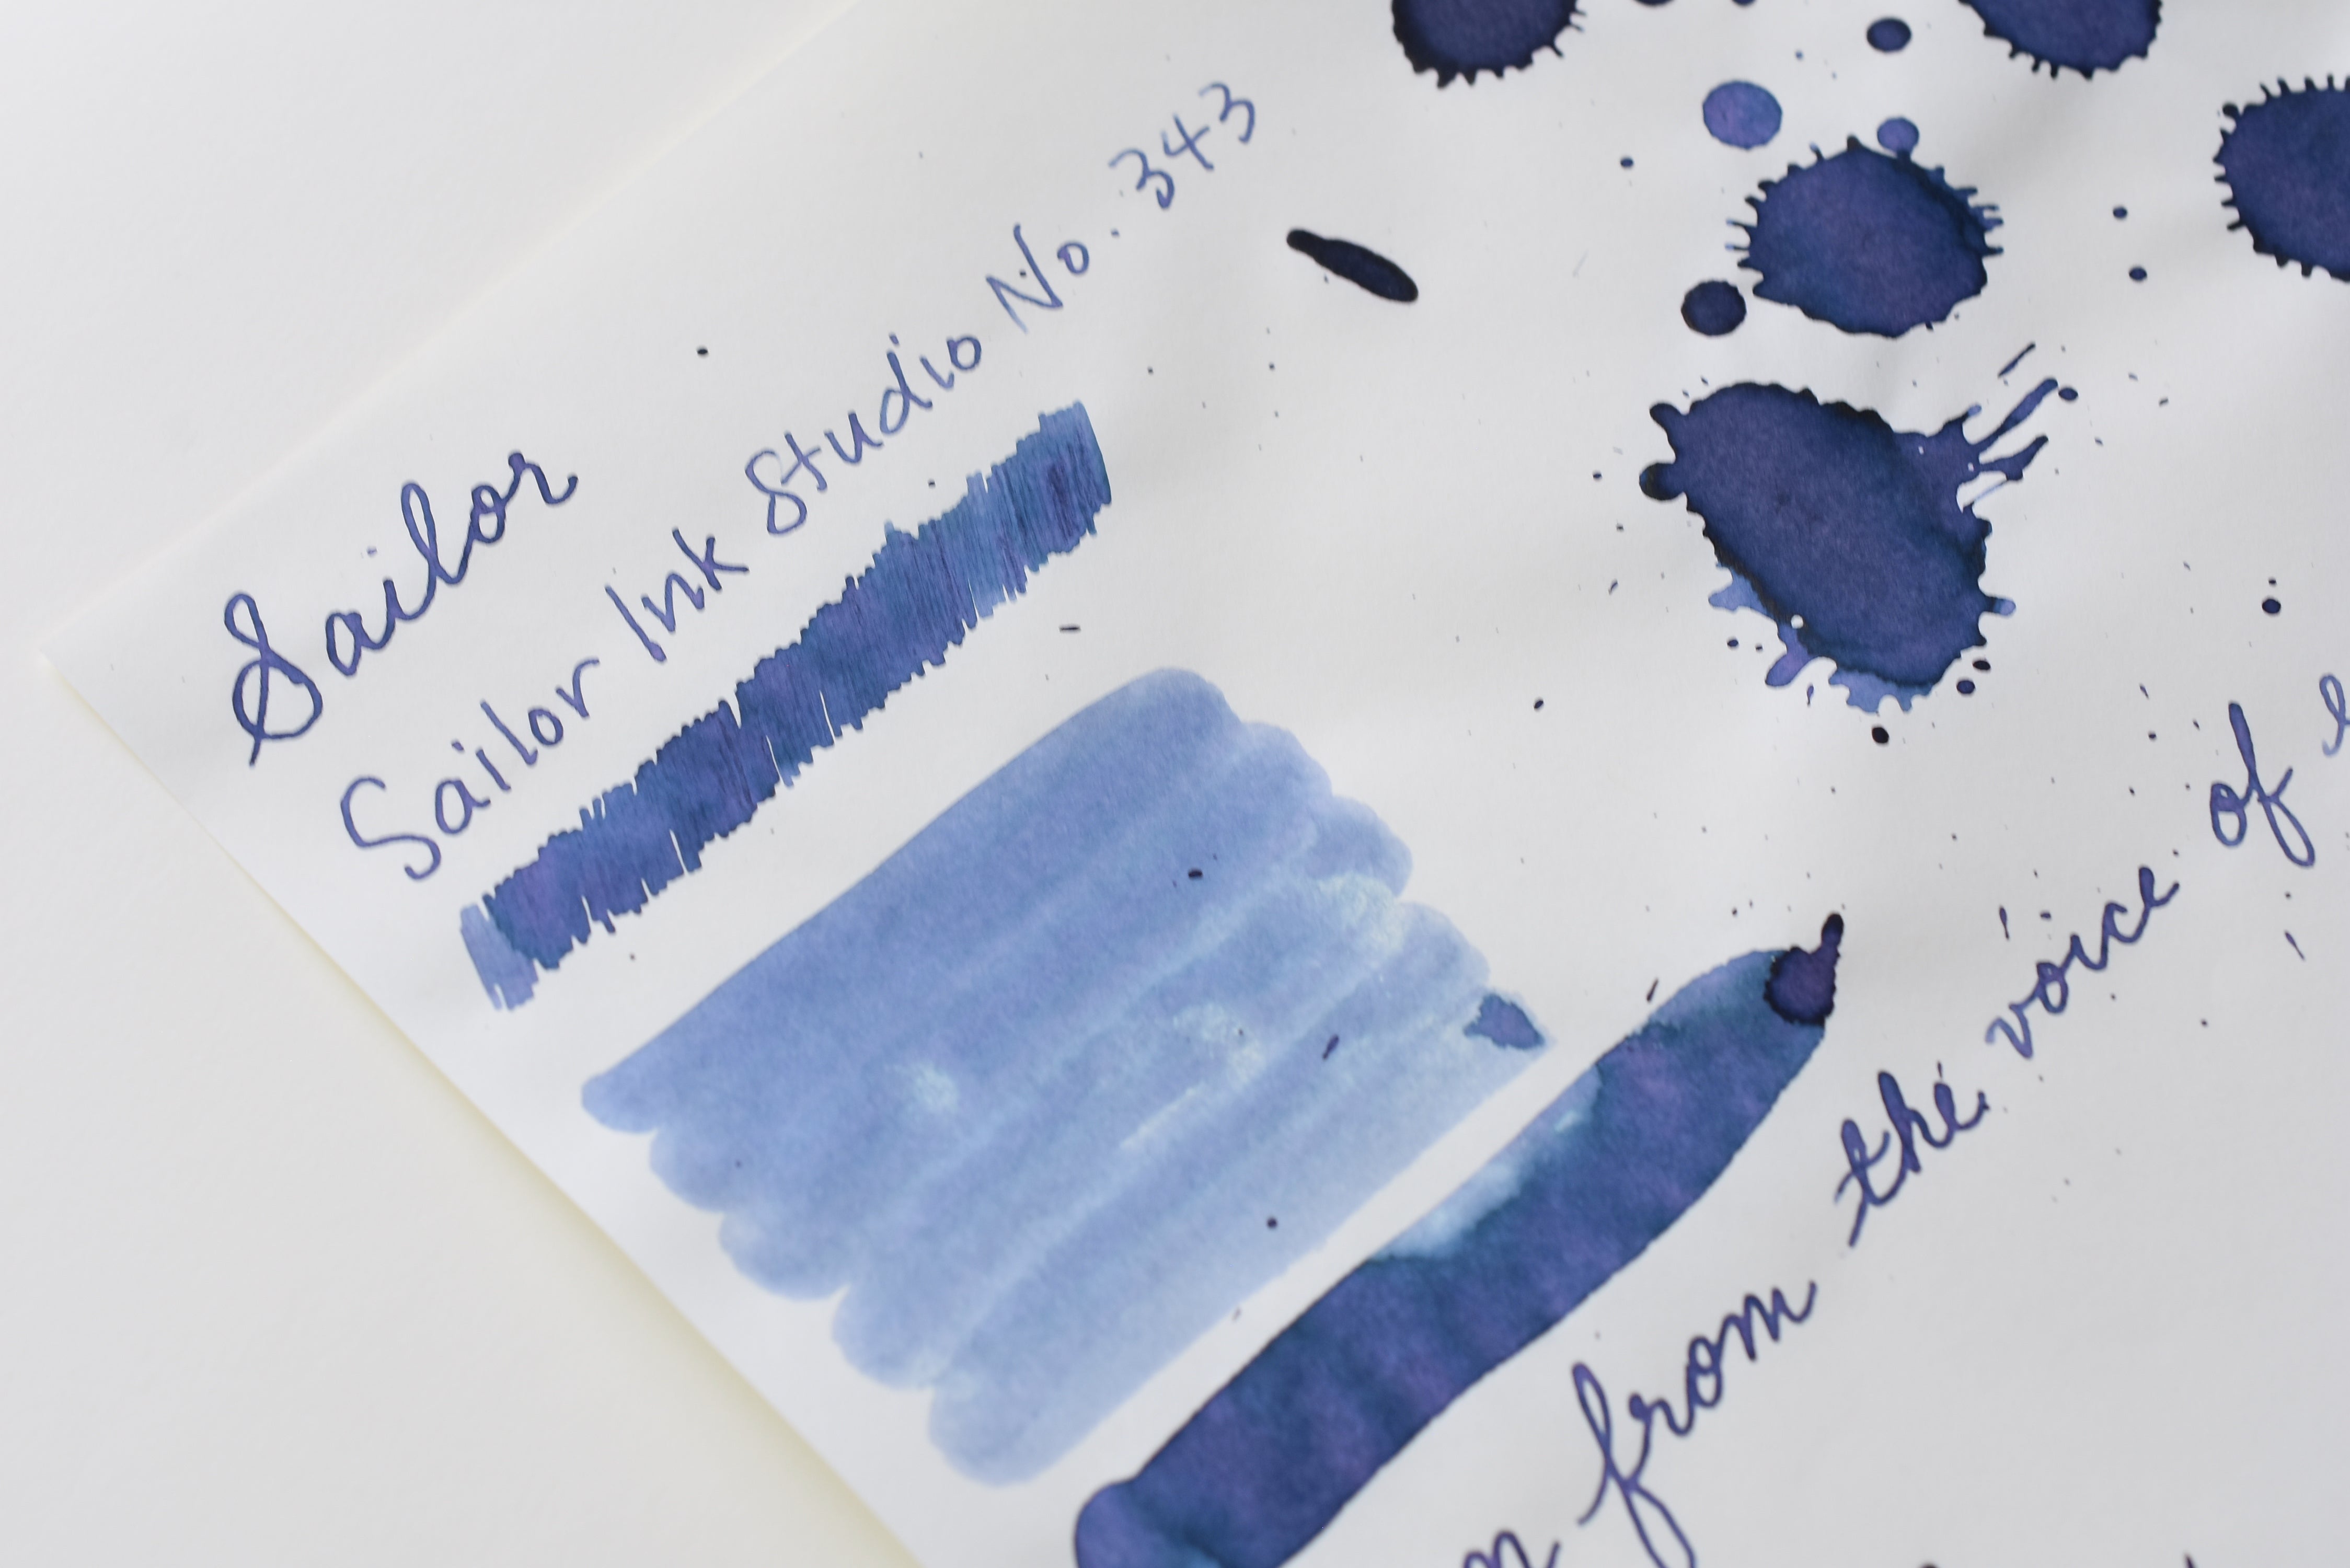 Sailor
Sailor Ink Studio No. 343
from the voice of